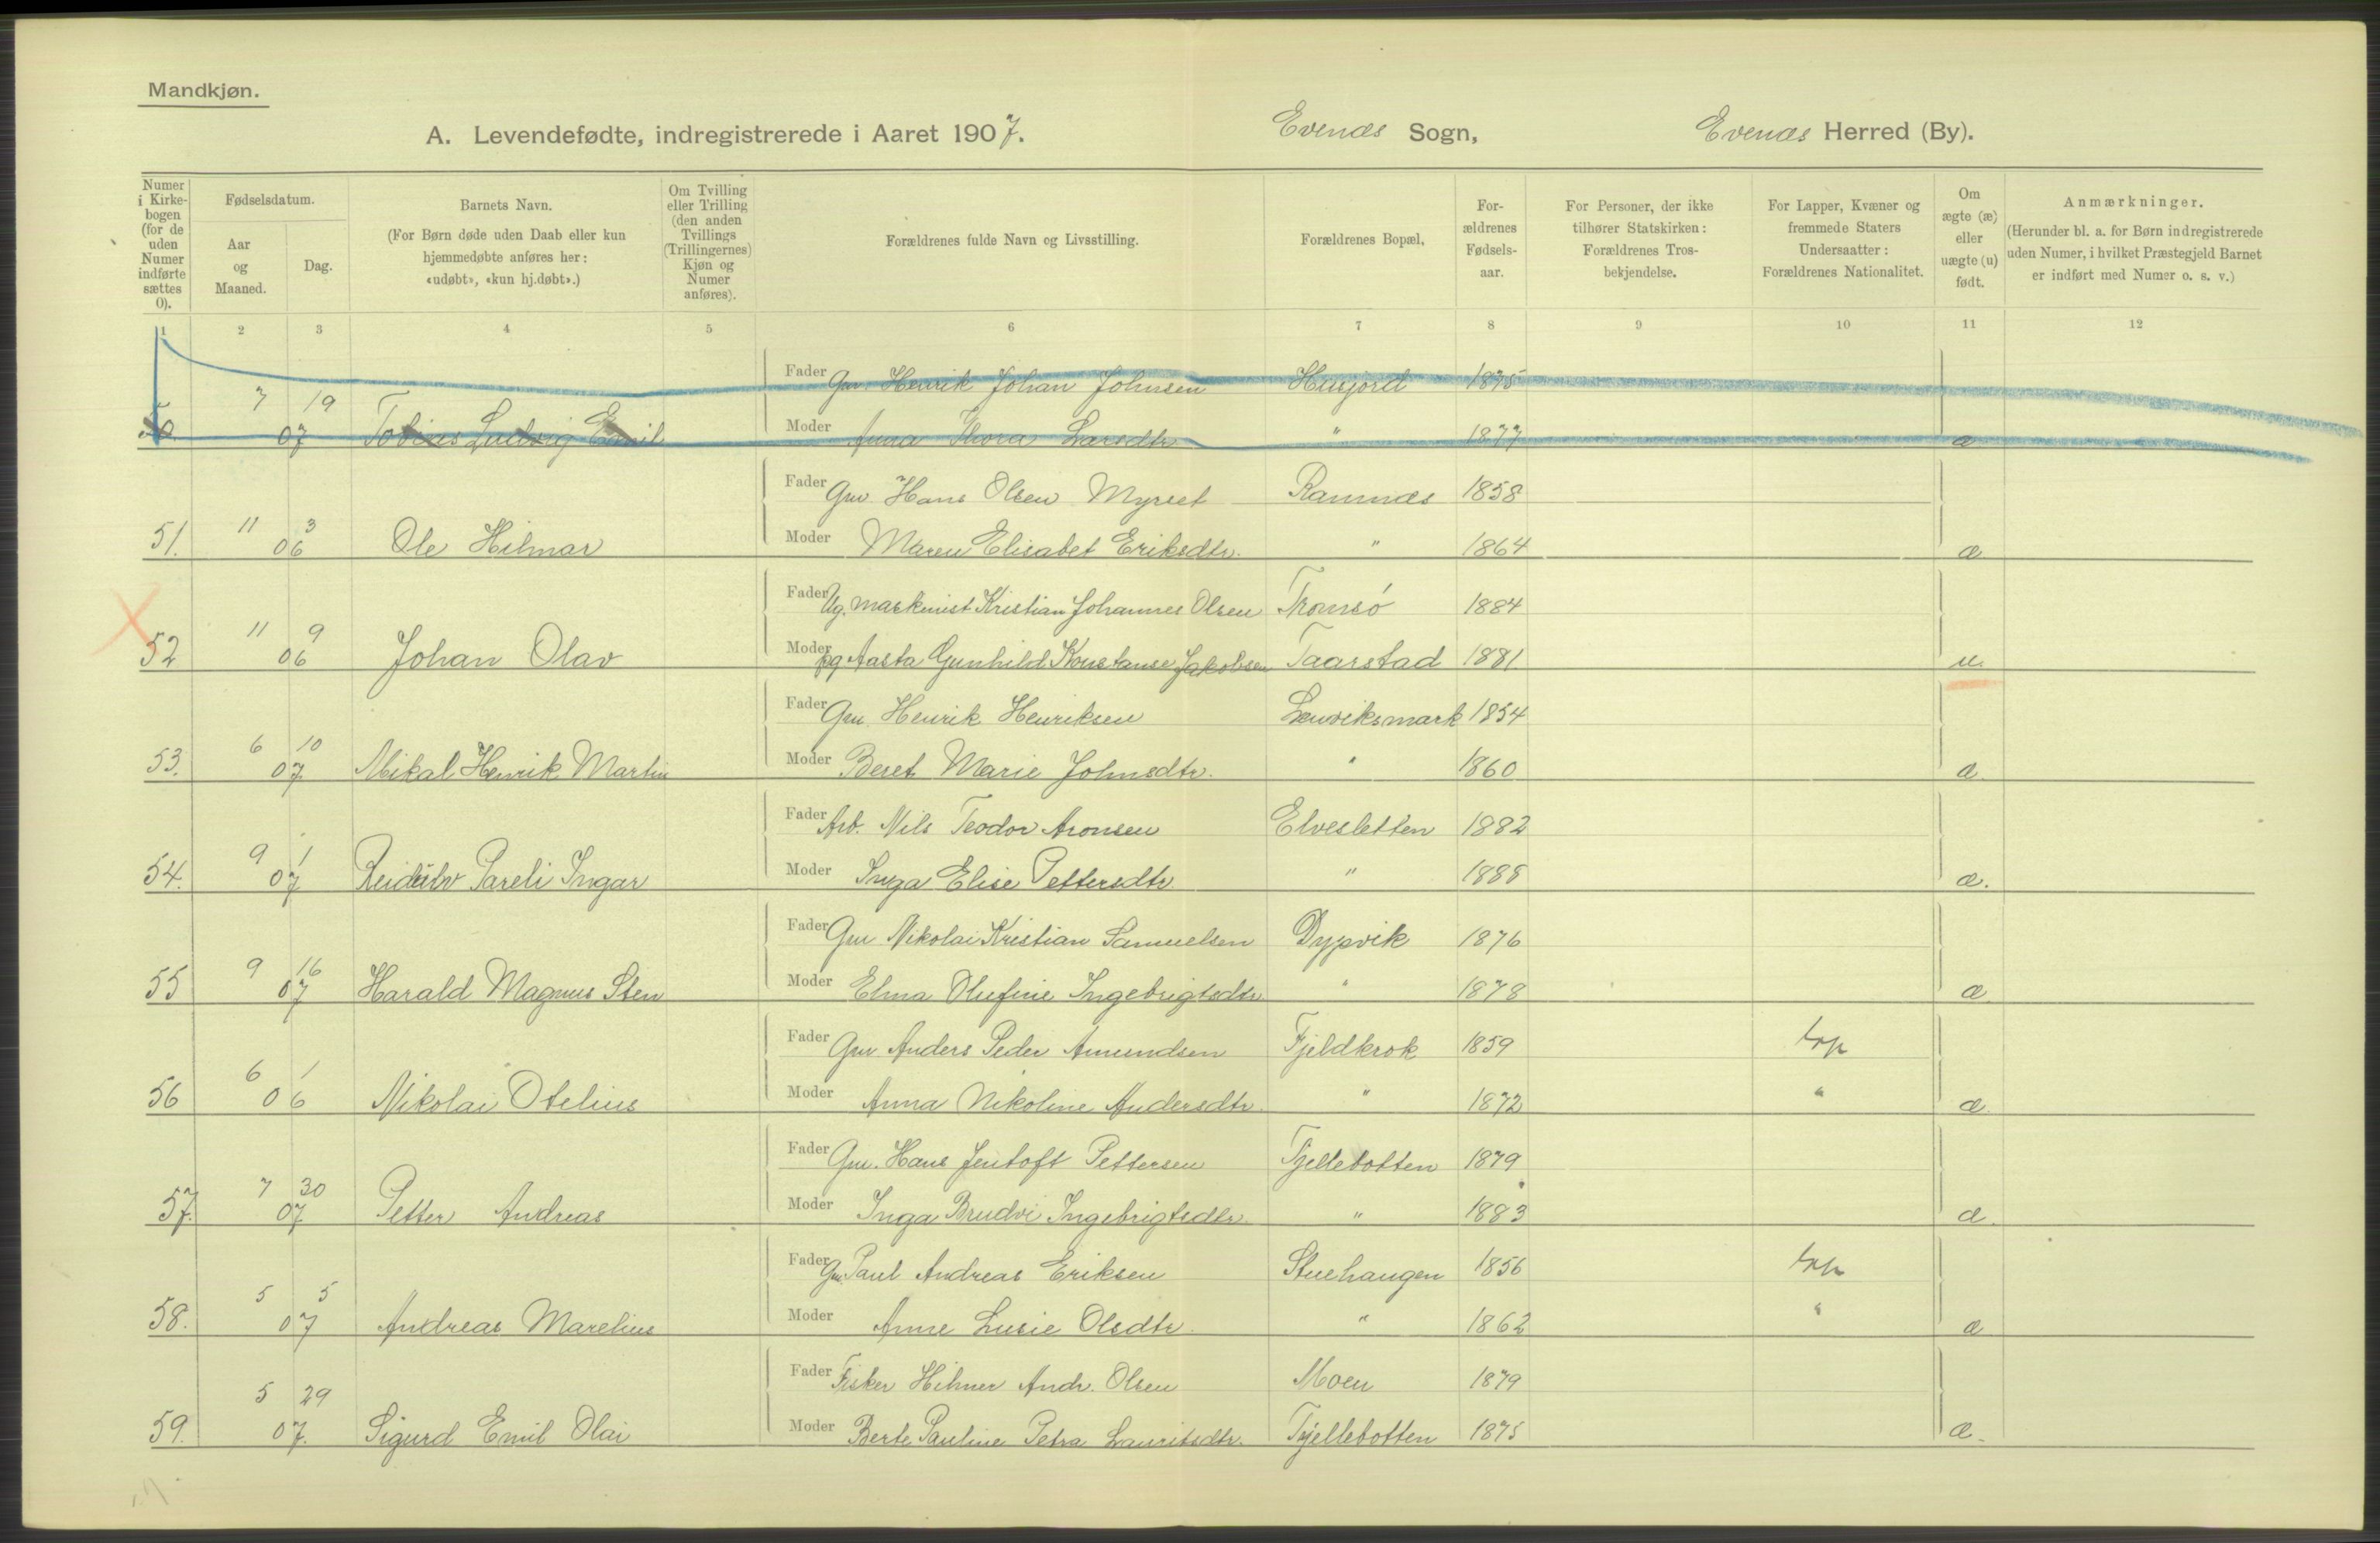 Mandkjøn.
A. Levendefødte, indregistrerede i Aaret 1907. Evenæs Sogn, Evenæs Herred (By).
Numer i Kirkebogen (for de uden Numer indførte sættes 0).
Fødselsdatum.
Aar og Maaned.
Dag.
Barnets Navn.
(For Børn døde uden Daab eller kun hjemmedøbte anføres her: «udøbt», «kun hj.døbt».)
Om Tvilling eller Trilling (den anden Tvillings (Trillingernes) Kjøn og Numer anføres).
Forældrenes fulde Navn og Livsstilling.
Forældrenes Bopæl.
Forældrenes Fødselsaar.
For Personer, der ikke tilhører Statskirken: Forældrenes Trosbekjendelse.
For Lapper, Kvæner og fremmede Staters Undersaatter: Forældrenes Nationalitet.
Om ægte (æ) eller uægte (u) født.
Anmærkninger.
(Herunder bl. a. for Børn indregistrerede uden Numer, i hvilket Præstegjeld Barnet er indført med Numer o. s. v.)
1 2 3 4 5 6 7 8 9 10 11 12
7 19 Fader Gm. Henrik Johan Johnsen Husjord 1875
50. 07 Tobias Ludvig Emil Moder Anna Thora Larsdtr. " 1877 æ
Fader Gm Hans Olsen Myrset Ramnæs 1858
11 3
51. 06 Ole Hilmar Moder Maren Elisabet Eriksdtr. " 1864 æ
Fader Ug. maskinist Kristian Johannes Olsen Tromsø 1884
11 9
52 06 Johan Olav Moder pg Aasta Gunhild Konstanse Jakobsen Taarstad 1881 u.
Fader Gm Henrik Henriksen Lenviksmark 1854
6 10
53. 07 Mikal Henrik Martin Moder Beret Marie Johnsdtr. " 1860 æ
Fader Arb. Nils Teodor Aronsen Elvesletten 1882
9 1
54. 07 Reidulv Pareli Ingar Moder Inga Elise Pettersdtr " 1888 æ.
Fader Gm Nikolai Kristian Samuelsen Dypvik 1876
9 16
55 07 Harald Magnus Sten Moder Elma Olufine Ingebrigtsdtr " 1878 æ
Fader Gm Anders Peder Amundsen Fjeldkrok 1859 lap
6 1
56 06 Nikolai Otelius Moder Anna Nikoline Andersdtr. " 1872 " æ
Fader Gm. Hans Jentoft Pettersen Fjellebotten 1879
7 30
57. 07 Petter Andreas Moder Inga Brudvi Ingebrigtsdtr. " 1883 æ.
Fader Gm. Paul Andreas Eriksen Stuehaugen 1856 lap
5 5
58. 07 Andreas Marelius Moder Anne Lusie Olsdtr. " 1862 " æ
Fader Fisker Hilmer Andr. Olsen Moen 1879
5 29
59. 07. Sigurd Emil Olai Moder Berte Pauline Petra Lauritsdtr. Fjellebotten 1875 æ.